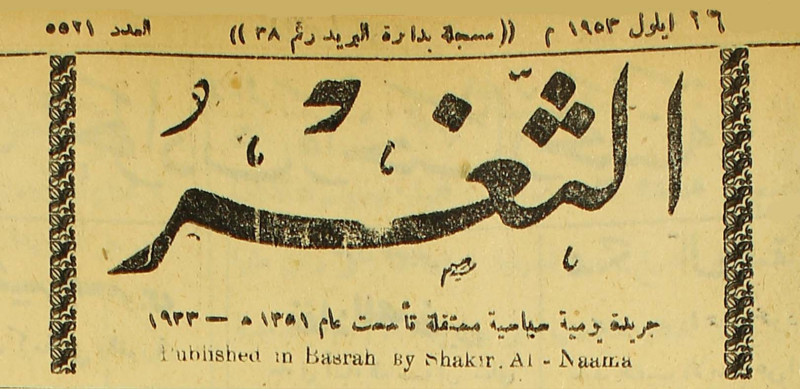 ٢٦ ايلول ١٩٥٣ م ((مسجلة بدائرة البريد رقم ٣٨)) العدد ٥٥٢١
الثغر
جريدة يومية سياسية مستقلة تأسست عام ١٣٥١ ه — ١٩٣٣
Published in Basrah By Shakir. Al - Naama